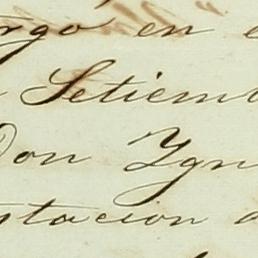 rgo en
Setiem
Don Ygn
tacion